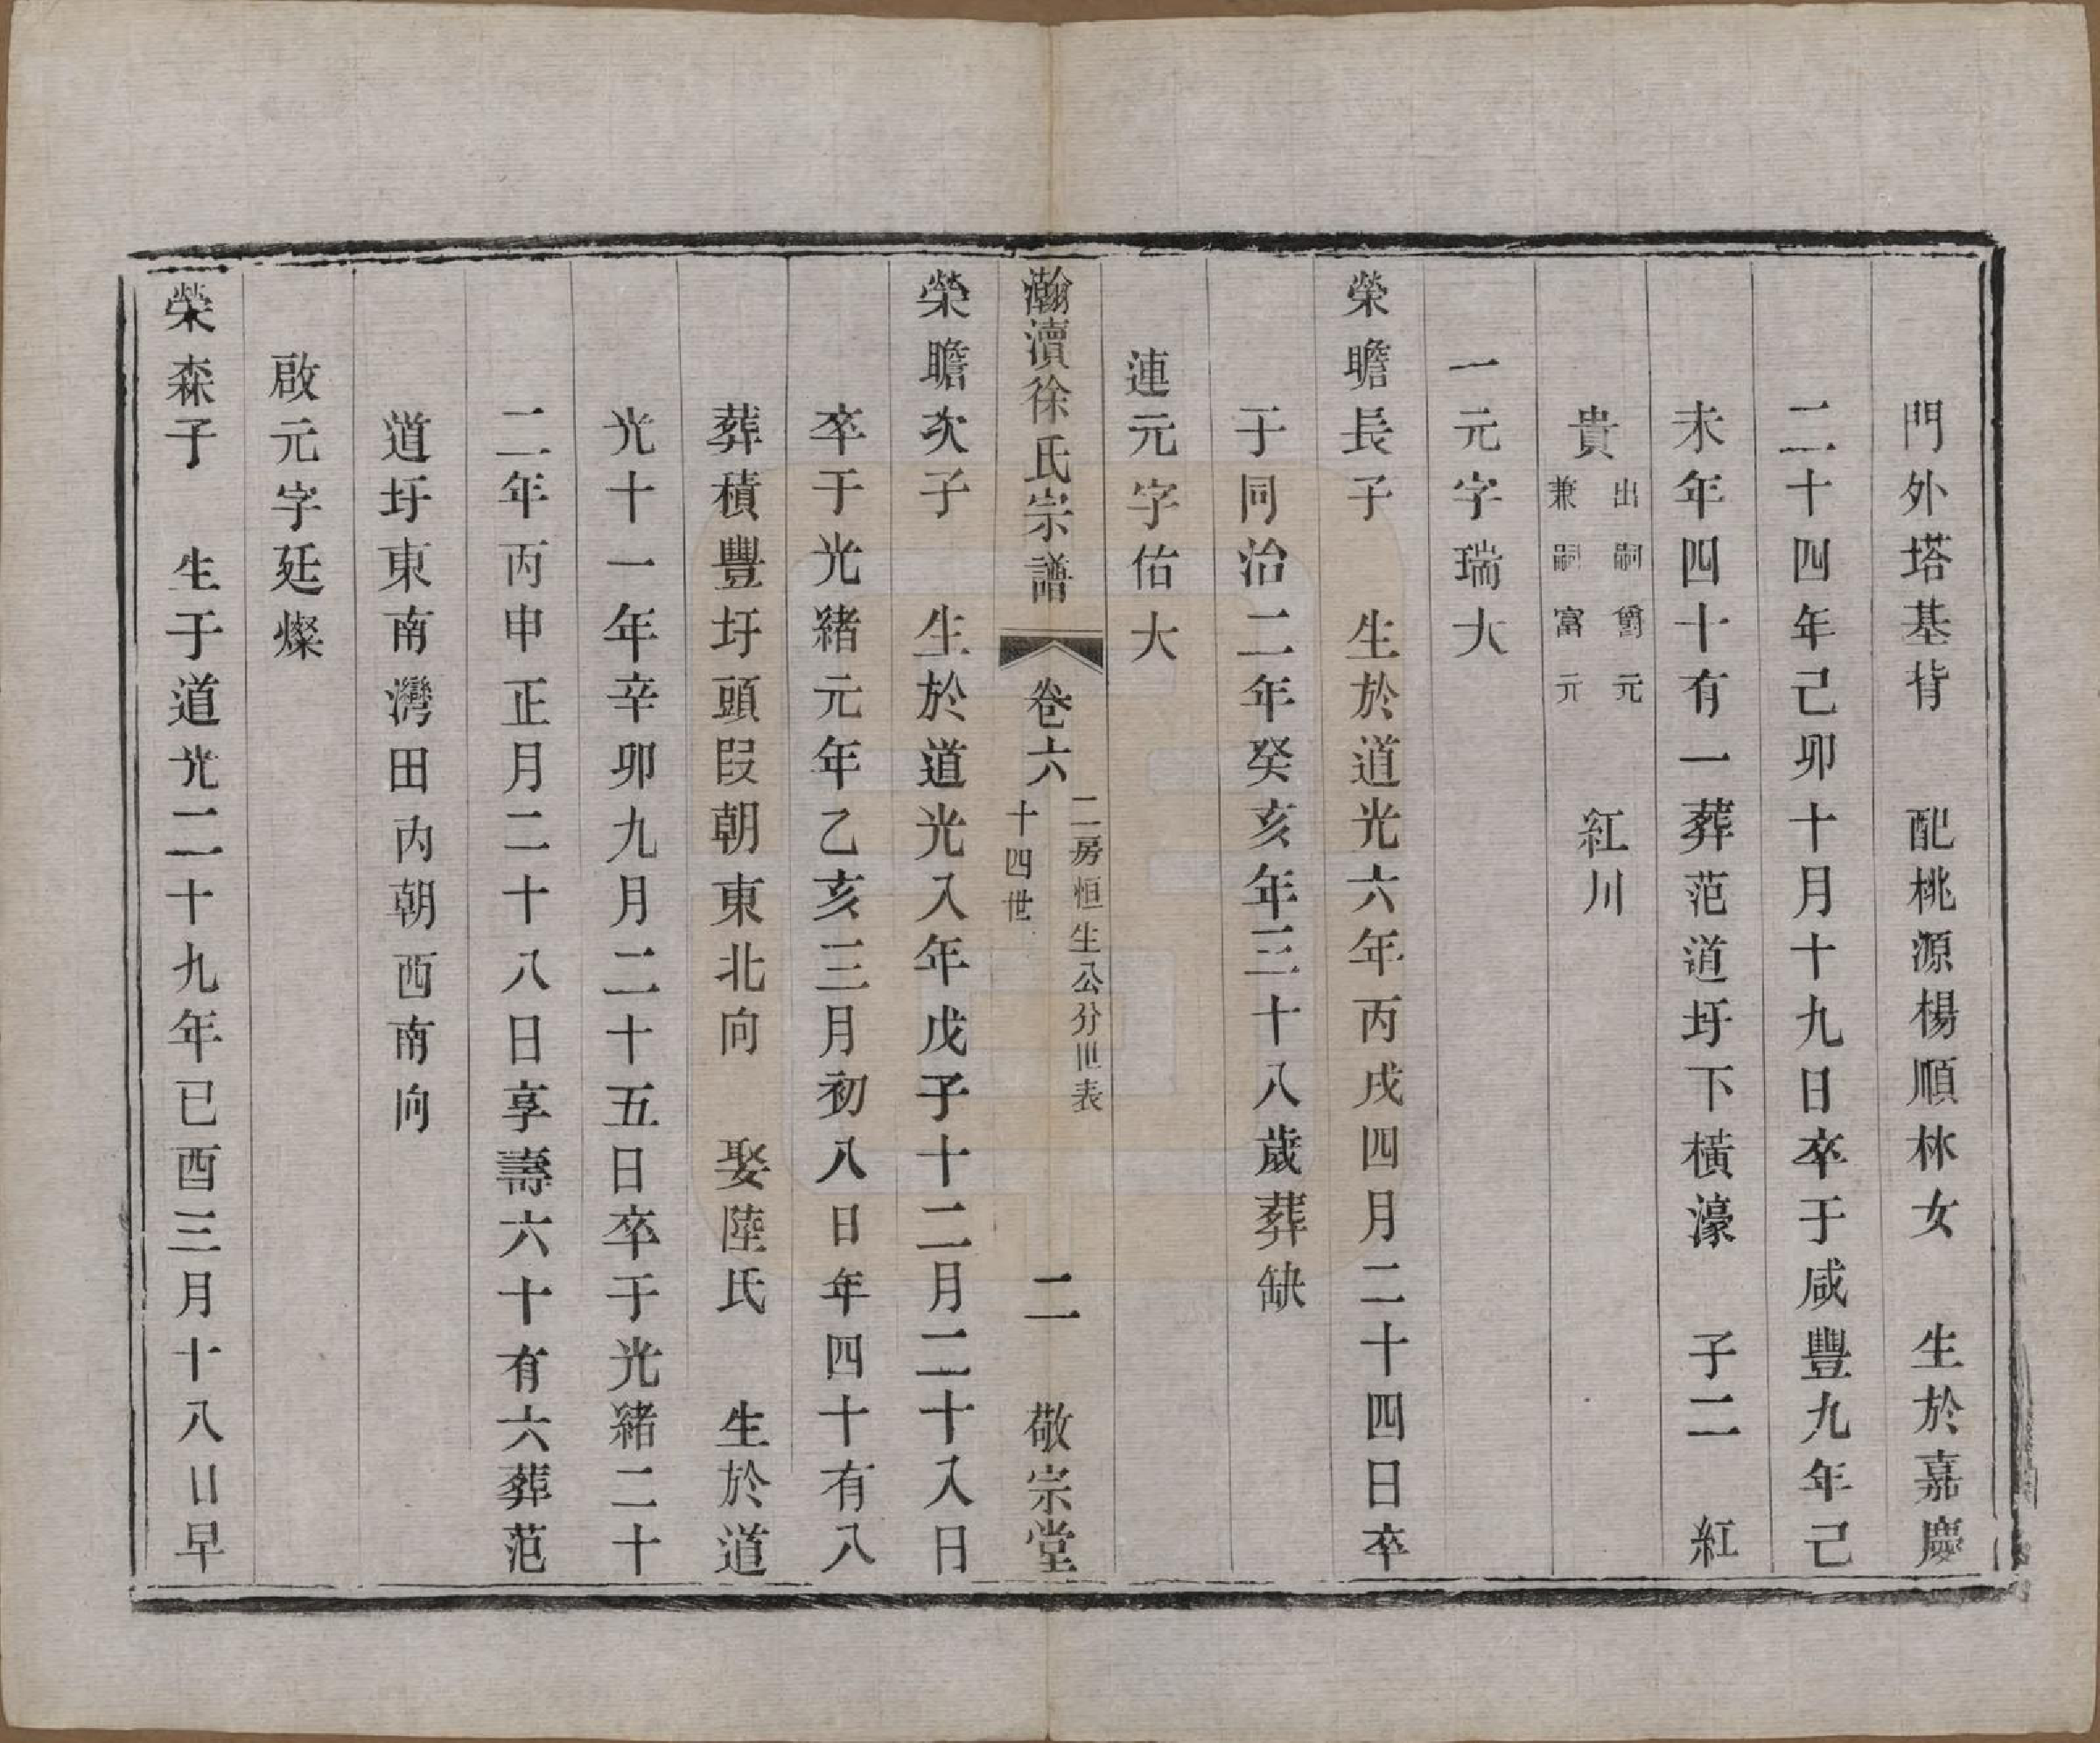 門外塔基背　配桃源楊順林女　生於嘉慶
二十四年己卯十月十九日卒于咸豐九年己
未年四十有一葬范道圩下橫濠　子二　紅
貴 出嗣爵元 兼嗣富元　紅川
一元字瑞大
榮瞻長子　生於道光六年丙戌四月二十四日卒
于同治二年癸亥年三十八歲葬缺
連元字佑大
瀚瀆徐氏宗譜　卷六　二房恒生公分世表 十四世　二　敬宗堂
榮瞻次子　生於道光八年戊子十二月二十八日
卒于光緒元年乙亥三月初八日年四十有八
葬積豐圩頭段朝東北向　娶陸氏　生於道
光十一年辛卯九月二十五日卒于光緒二十
二年丙申正月二十八日享壽六十有六葬范
道圩東南灣田內朝西南向
啟元字延燦
榮森子　生于道光二十九年已酉三月十八日早